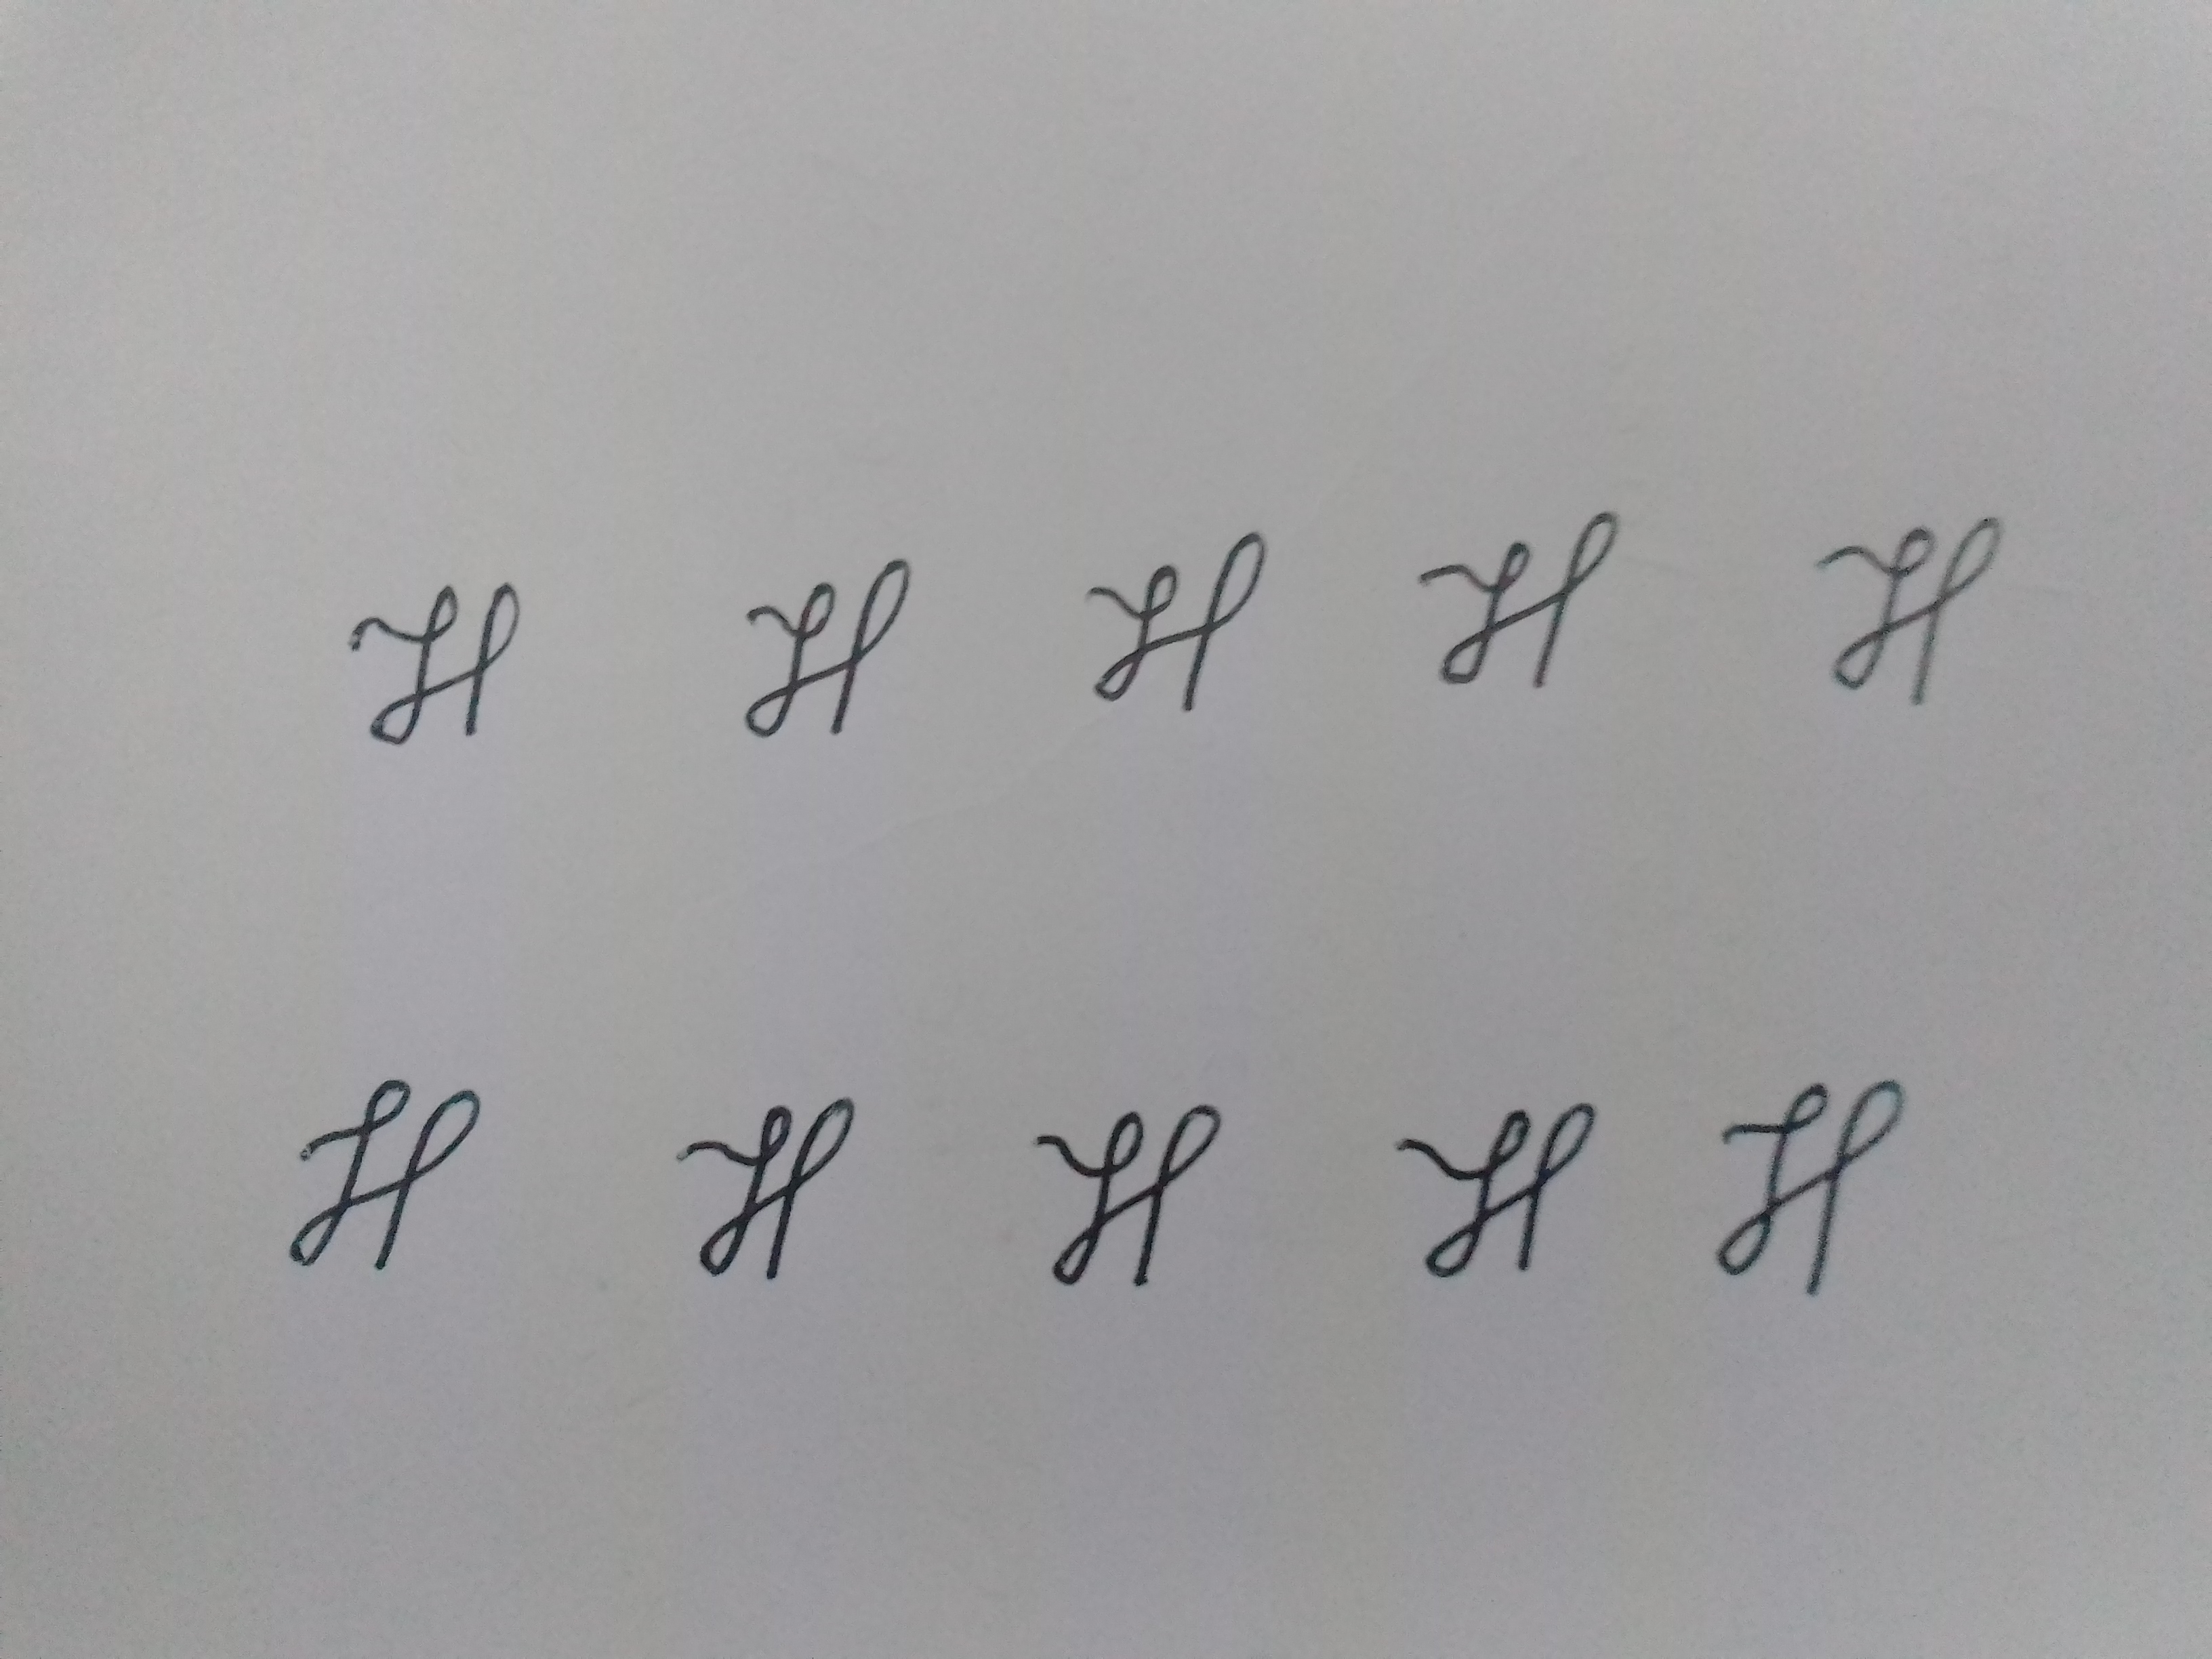 H H H H H
H H H H H